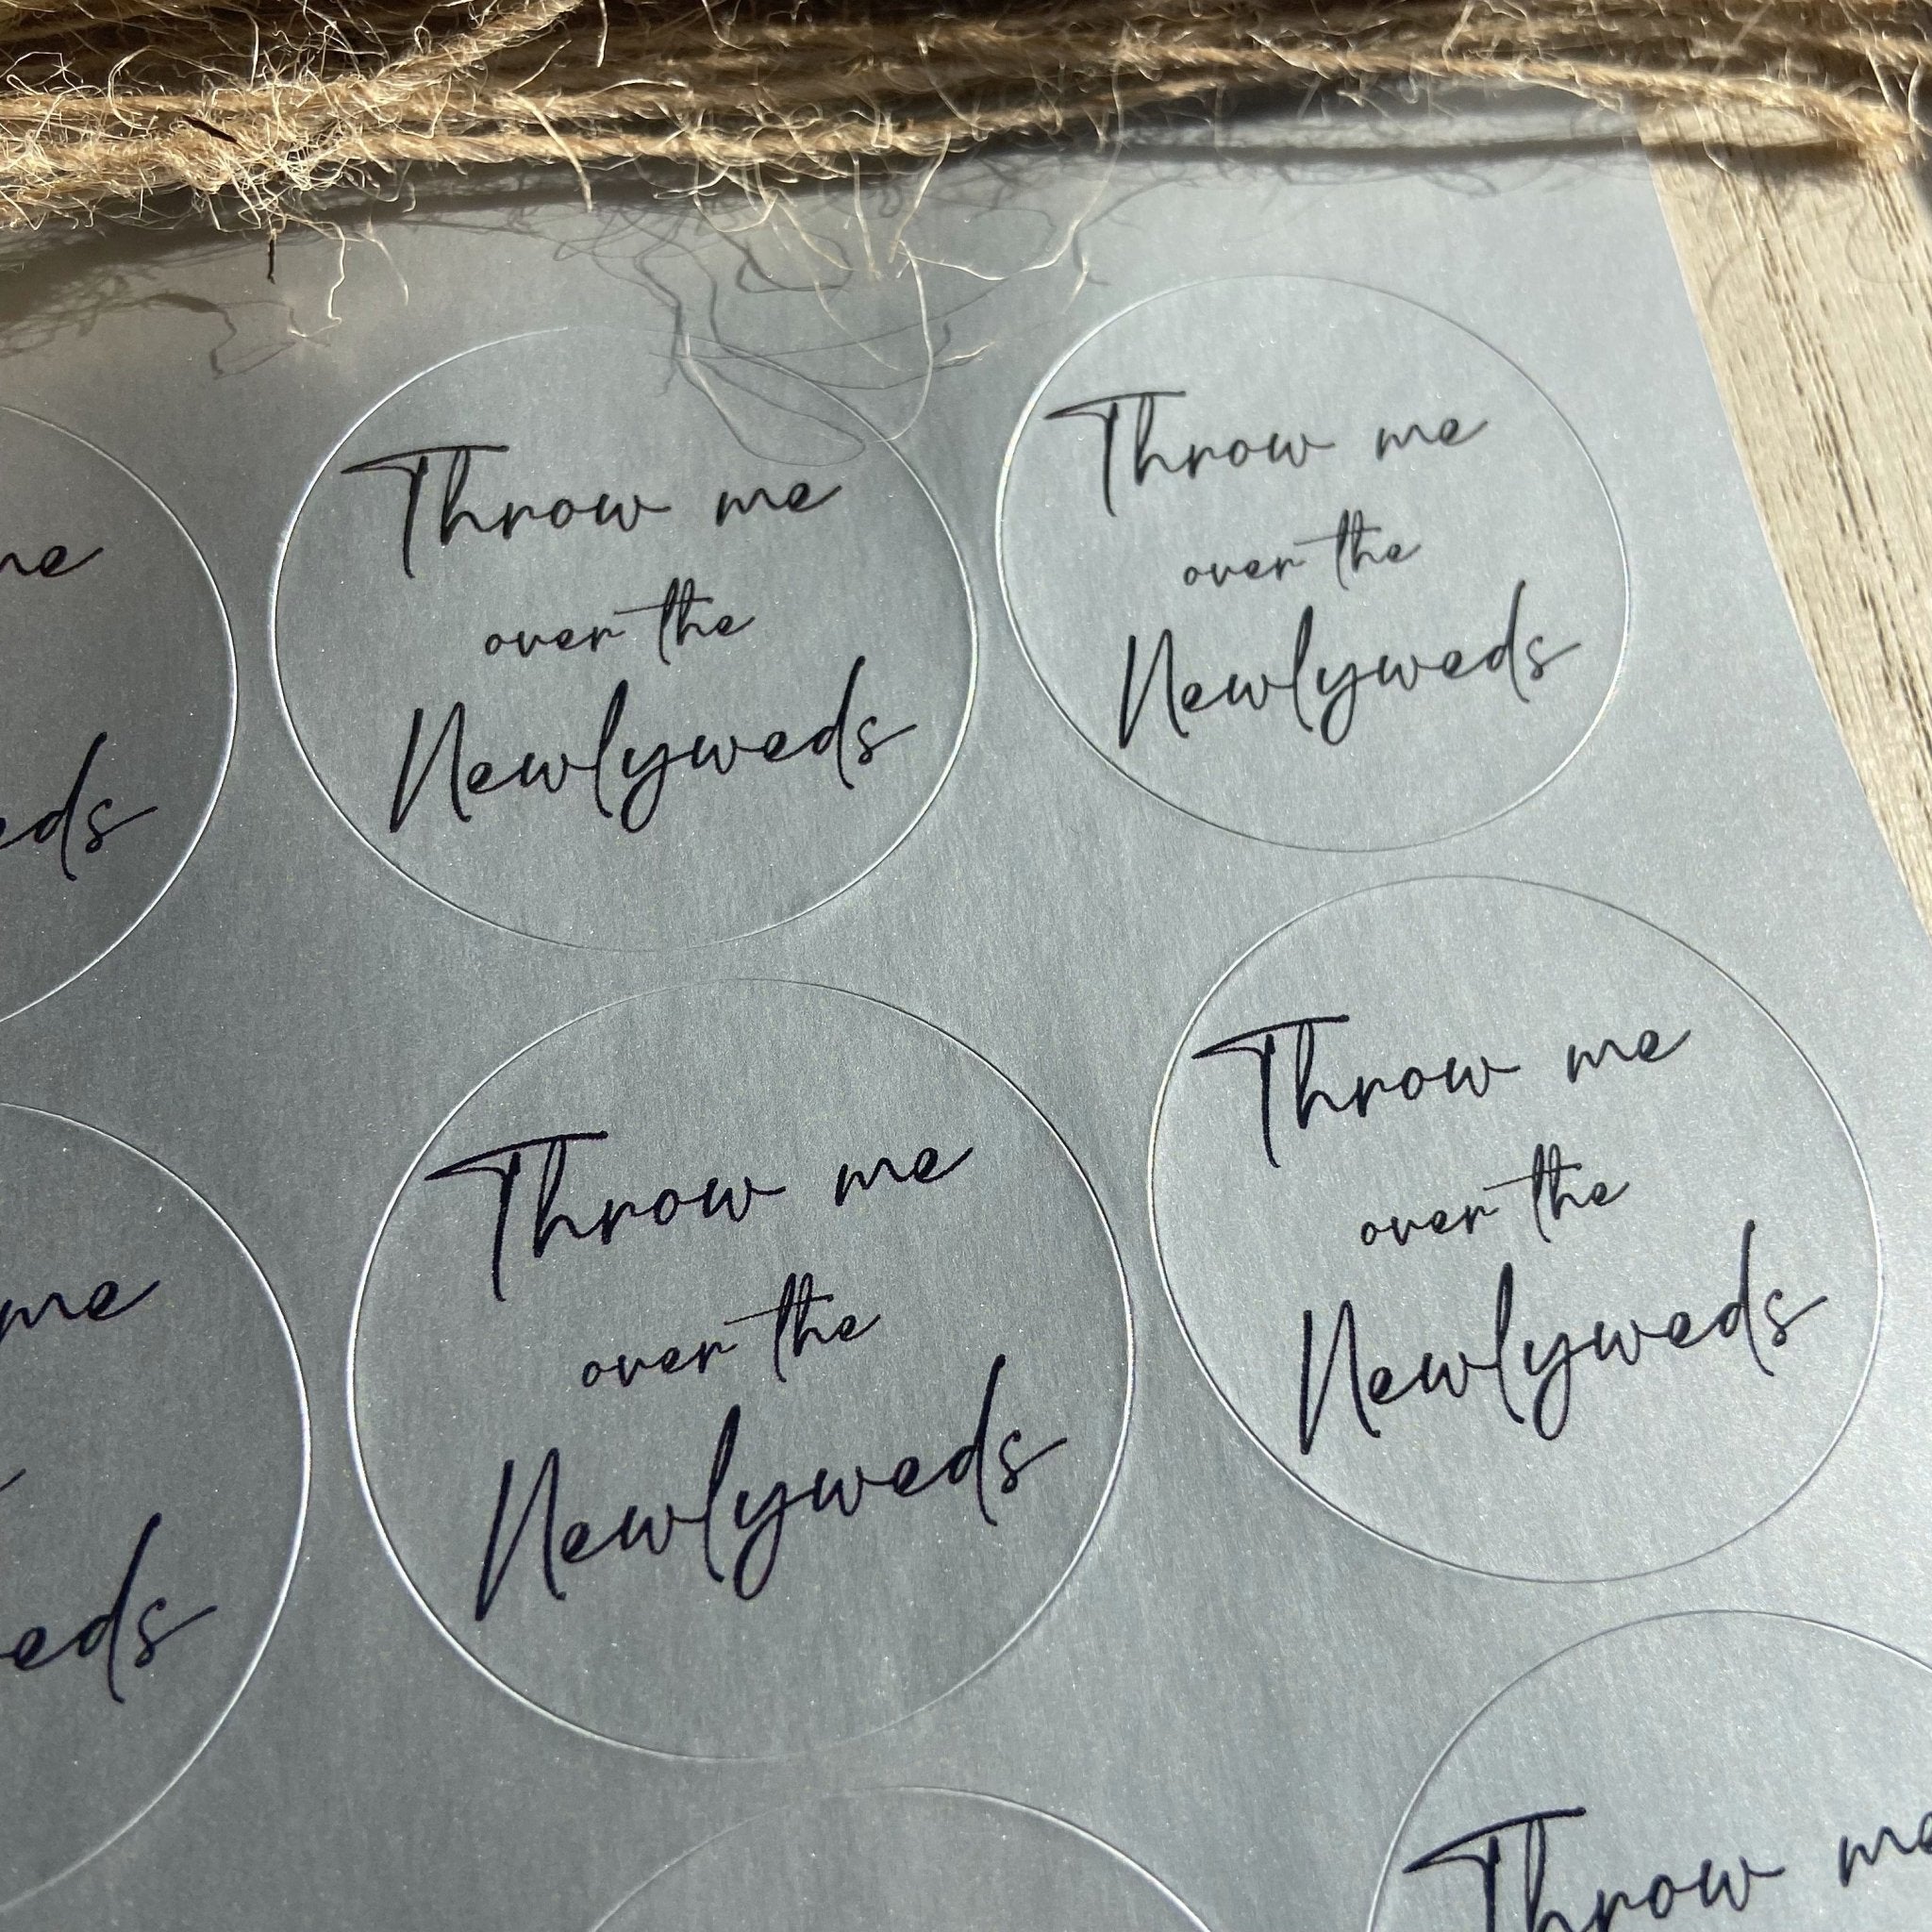 Throw me
over the
Newlyweds
Throw me
over the
Newlyweds
me
eds
Throw me
over the
Newlyweds
Throw me
over the
Newlyweds
me
eds
Throw me